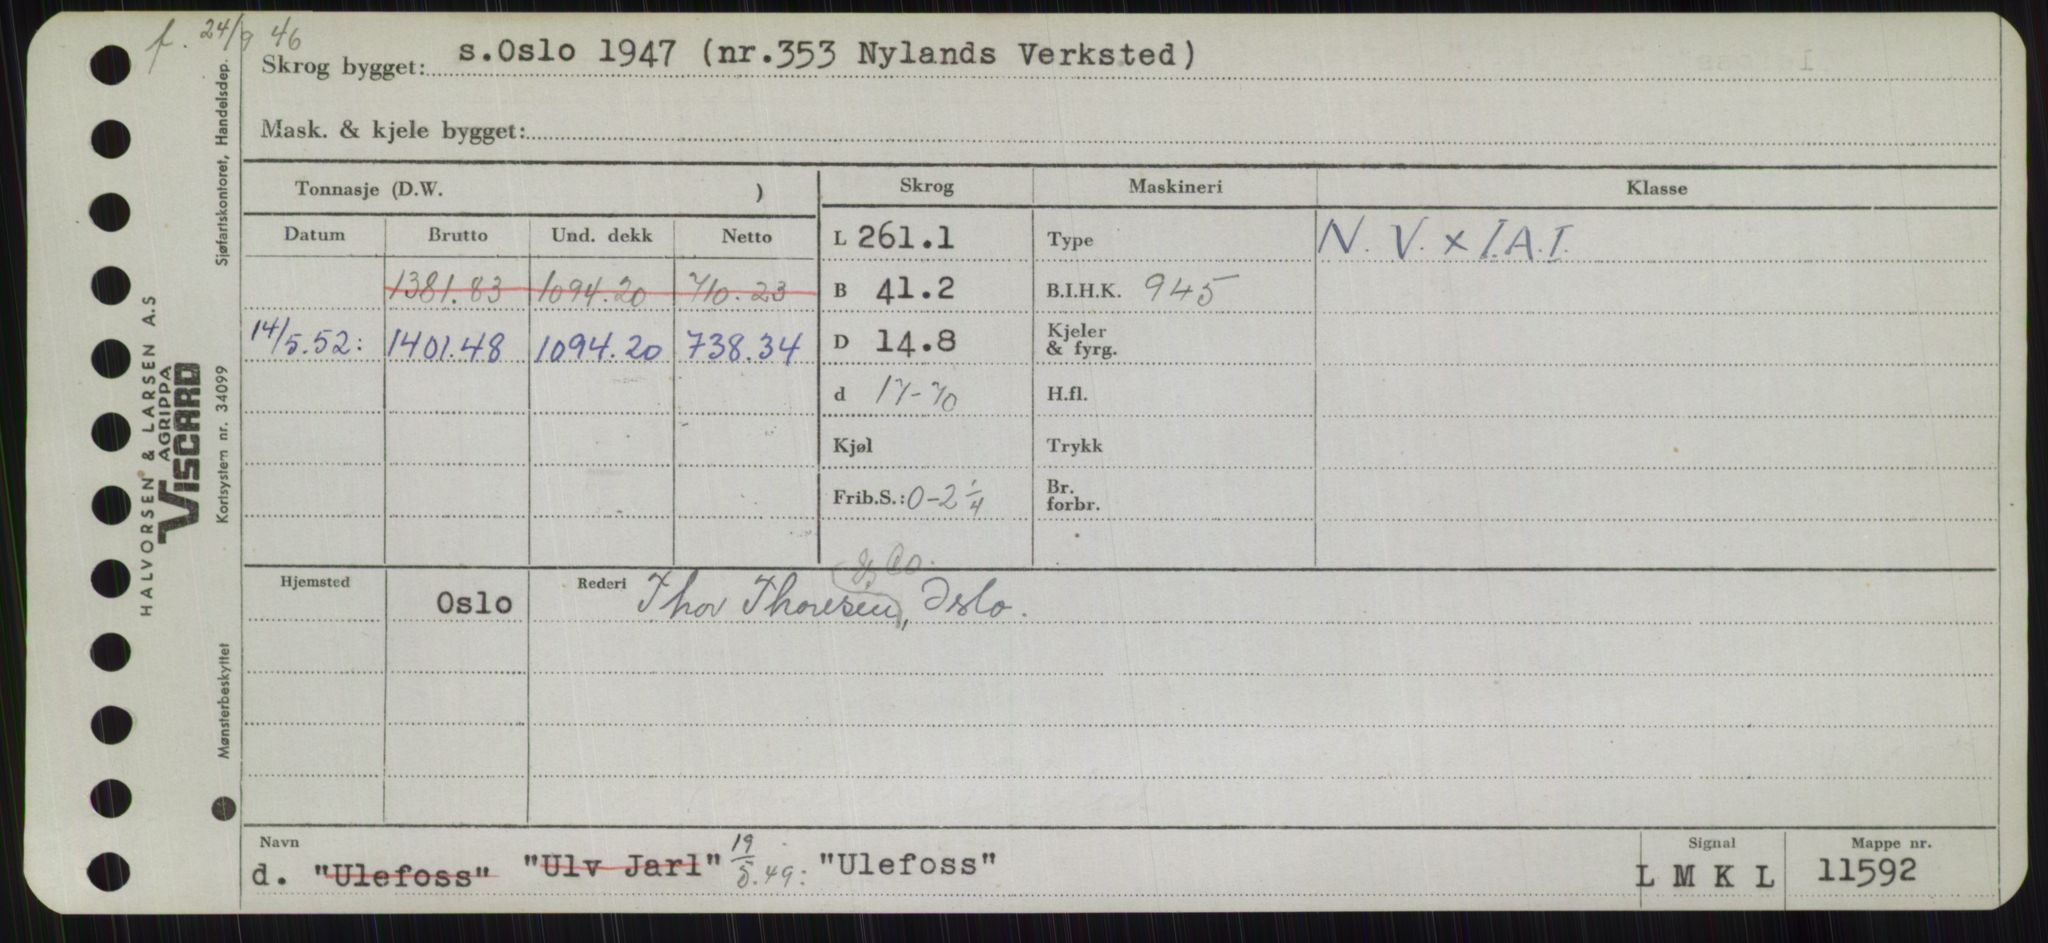 f. 24/9 46
Skrog bygget: s.Oslo 1947 (nr.353 Nylands Verksted)
Mask. & kjele bygget:
Tonnasje (D.W. )
Skrog Maskineri Klasse
Datum Brutto Und. dekk Netto
L 261.1 Type N. V. x I.A.I.
1381.83 1094.20 710.23
B 41.2 B.I.H.K. 945
14/5.52: 1401.48 1094.20 738.34
D 14.8 Kjeler
& fyrg.
d 17-70 H.fl.
Kjøl Trykk
Frib.S.: 0-2 1/4 Br.
forbr.
& Co.
Hjemsted Oslo Rederi Thor Thoresen, Oslo.
Navn
d. "Ulefoss" "Ulv Jarl" 19/5.49: "Ulefoss"
Signal
L M K L
Mappe nr.
11592
HALVORSEN & LARSEN A.S
AGRIPPA
VISCARD
Mønsterbeskyttet Kortsystem nr. 34099 Sjøfartskontoret, Handelsdep.